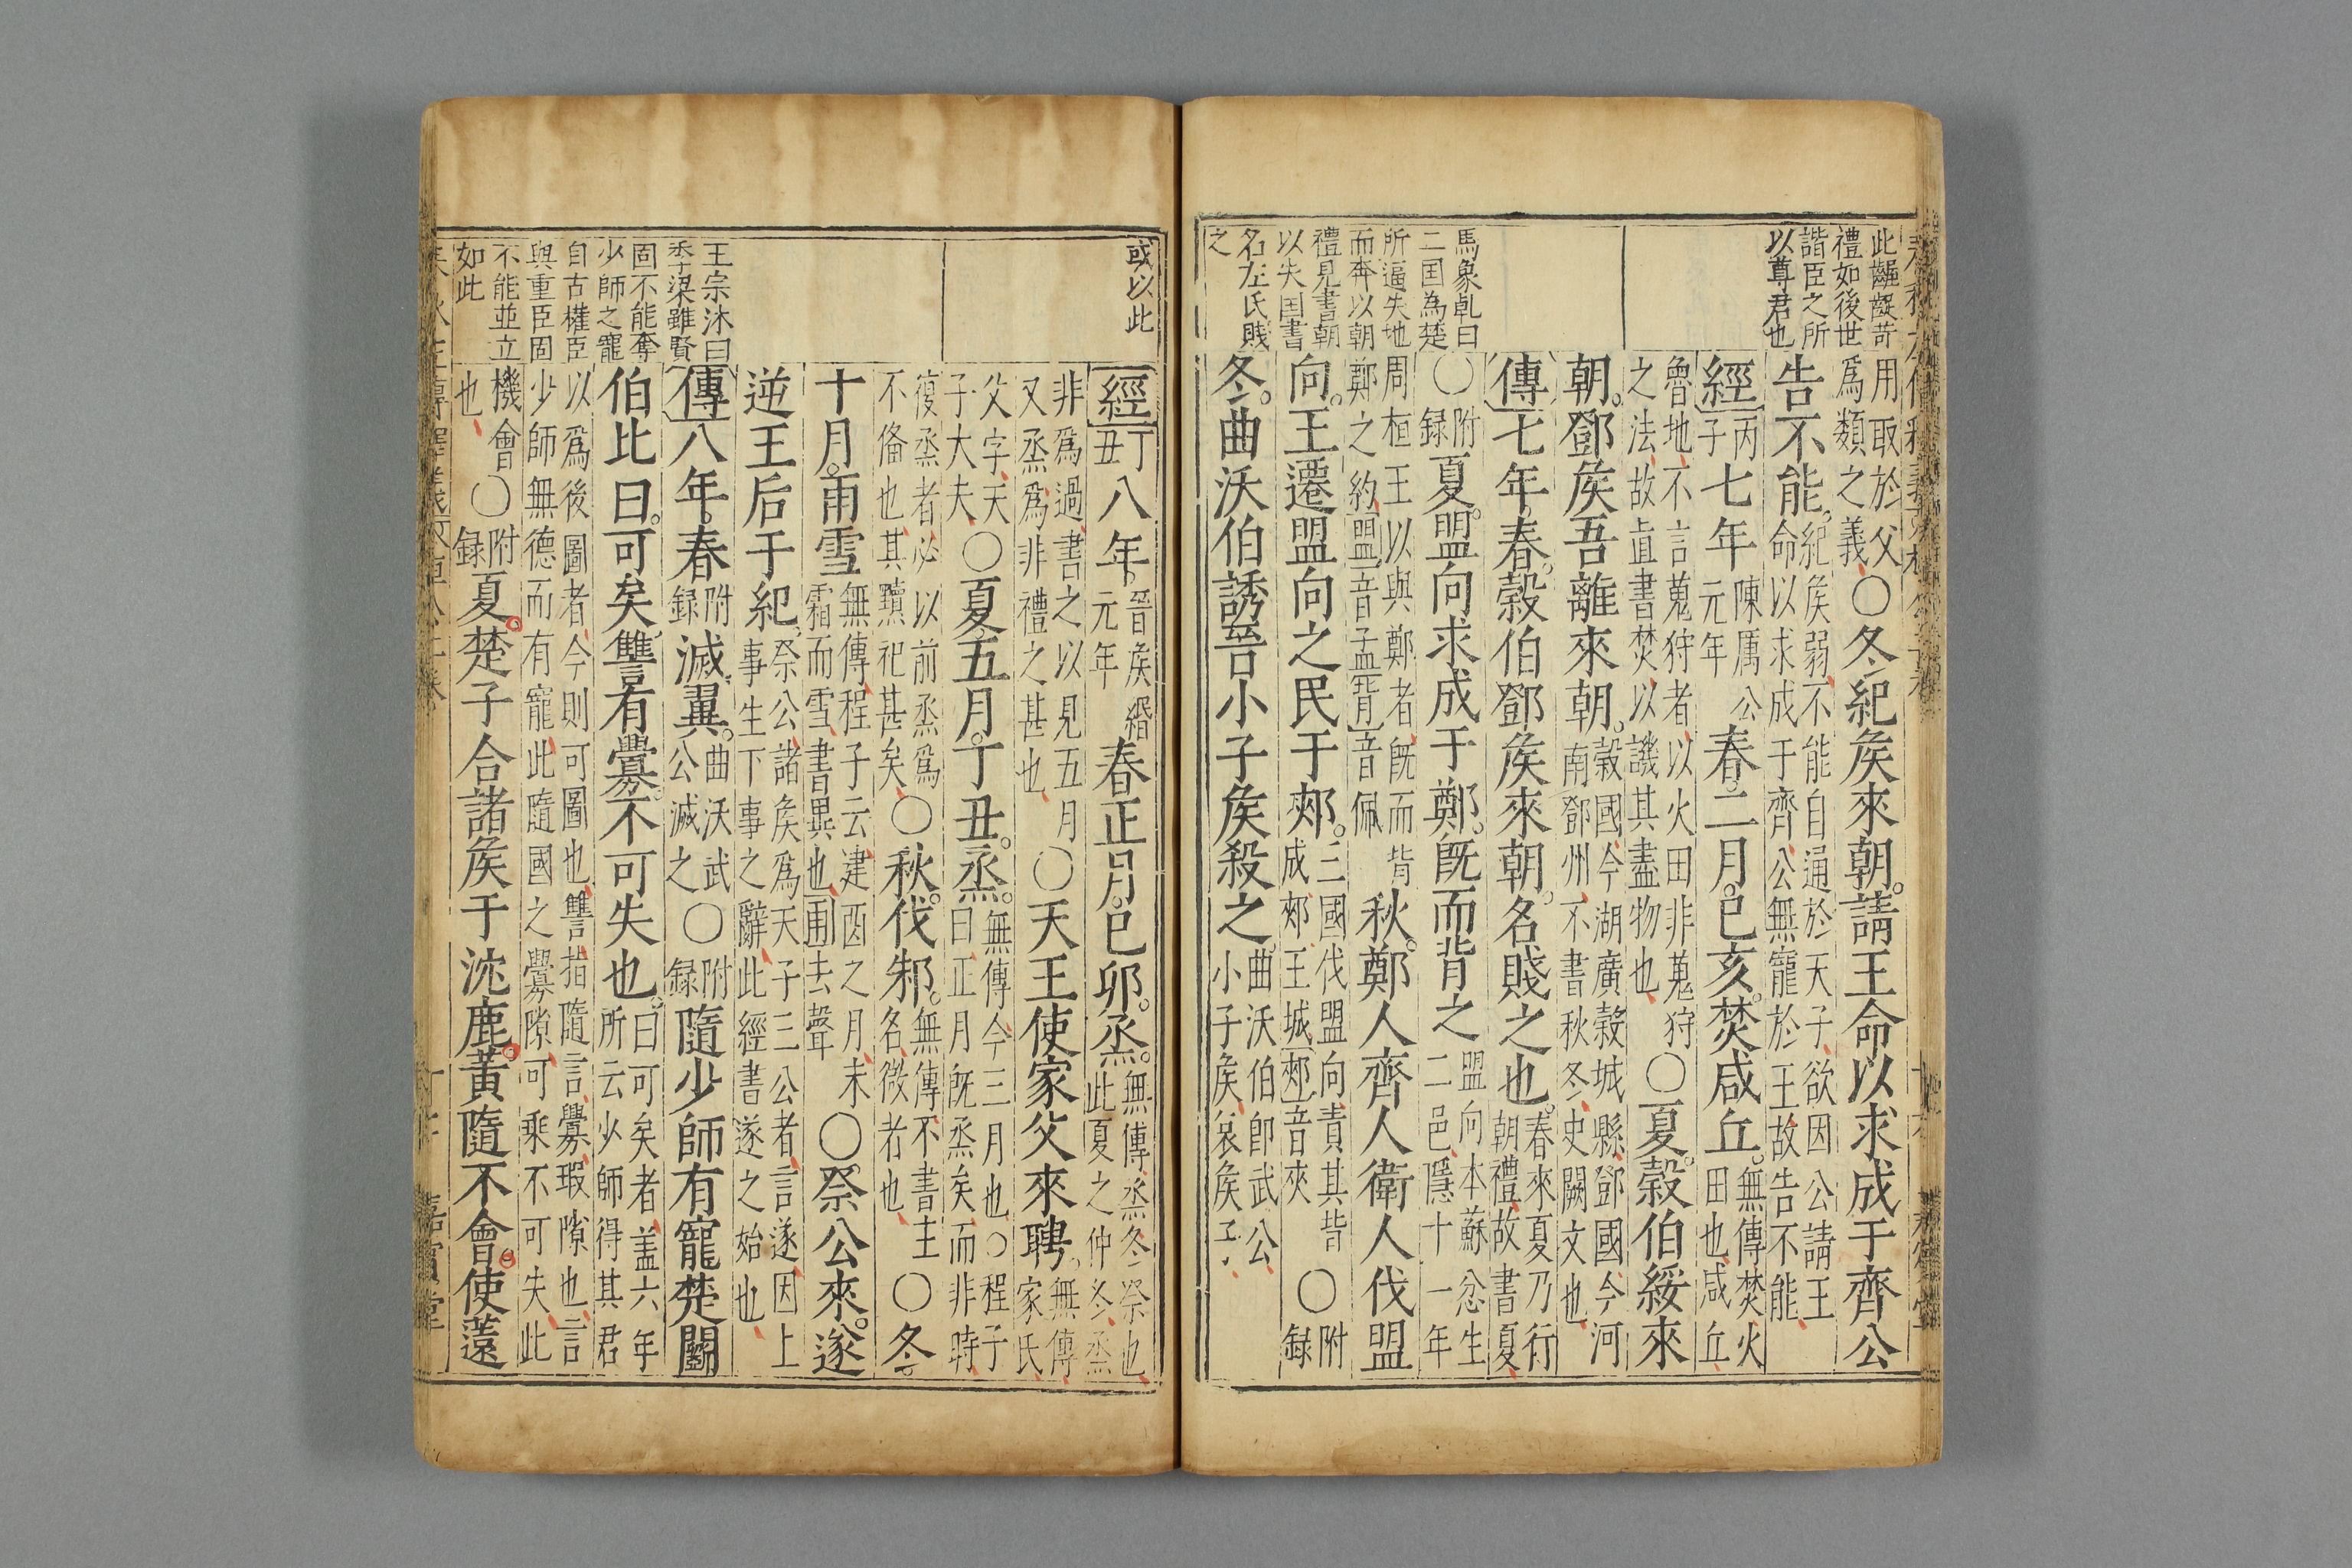 此齷齪苛
禮如後世
諧臣之所
以尊君也
馬象乹曰
二国為楚
所逼失地
而奔以朝
禮見書朝
以失国書
名左氏賤
之
用取於父〇冬紀矦來朝請王命以求成于齊公
爲類之義
告不能紀矦弱不能自通於天子欲因公請王
命以求成于齊公無寵於王故告不能
經丙子七年陳厲公元年春二月已亥焚咸丘無傳焚火田也咸丘
魯地不言蒐狩者以火田非蒐狩之法故直書焚以譏其盡物也〇夏穀伯綏來
朝鄧矦吾離來朝穀國今湖廣穀城縣鄧國今河南鄧州不書秋冬史闕文也
傳七年春穀伯鄧矦來朝名賤之也春來夏乃行朝禮故書夏
〇附録夏盟向求成于鄭旣而背之盟向本蘇忿生二邑隱十一年
周桓王以與鄭者旣而背鄭之約盟音孟背音佩秋鄭人齊人衛人伐盟
向王遷盟向之民于郟三國伐盟向責其背成郟王城郟音夾〇附録
冬曲沃伯誘晉小子矦殺之曲沃伯卽武公小子矦哀矦子
或以此
王宗沐曰
季梁雖賢
固不能奪
少師之寵
自古權臣
與重臣固
不能並立
如此
經丁丑八年晉矦緡元年春正月已卯烝無傳烝冬祭也此夏之仲冬烝
非爲過書之以見五月又烝爲非禮之甚也〇天王使家父來聘無傳家氏
父字天子大夫〇夏五月丁丑烝無傳今三月也〇程子曰正月旣烝矣而非時
復烝者必以前烝爲不俻也其黷祀甚矣〇秋伐邾無傳不書主名微者也〇冬
十月雨雪無傳程子云建酉之月未霜而雪書異也雨去聲〇祭公來遂
逆王后于紀祭公諸矦爲天子三公者言遂因上事生下事之辭此經書遂之始也
傳八年春附録滅翼曲沃武公滅之〇附録隨少師有寵楚鬬
伯比曰可矣讐有釁不可失也曰可矣者盖六年所云少師得其君
以爲後圖者今則可圖也讐指隨言釁瑕隙也言少師無德而有寵此隨國之釁隙可乘不可失此
機會也〇附録夏楚子合諸矦于沈鹿黃隨不會使薳